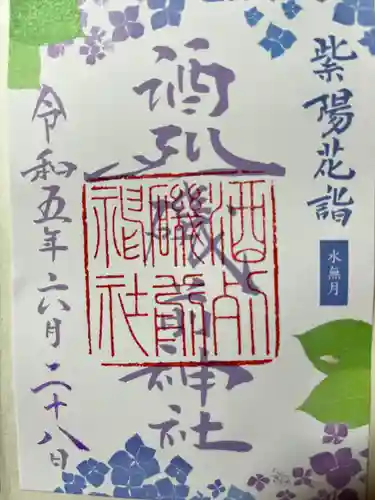 紫陽花詣
水無月
酒列磯前神社
酒列磯前神社
令和五年六月二十八日